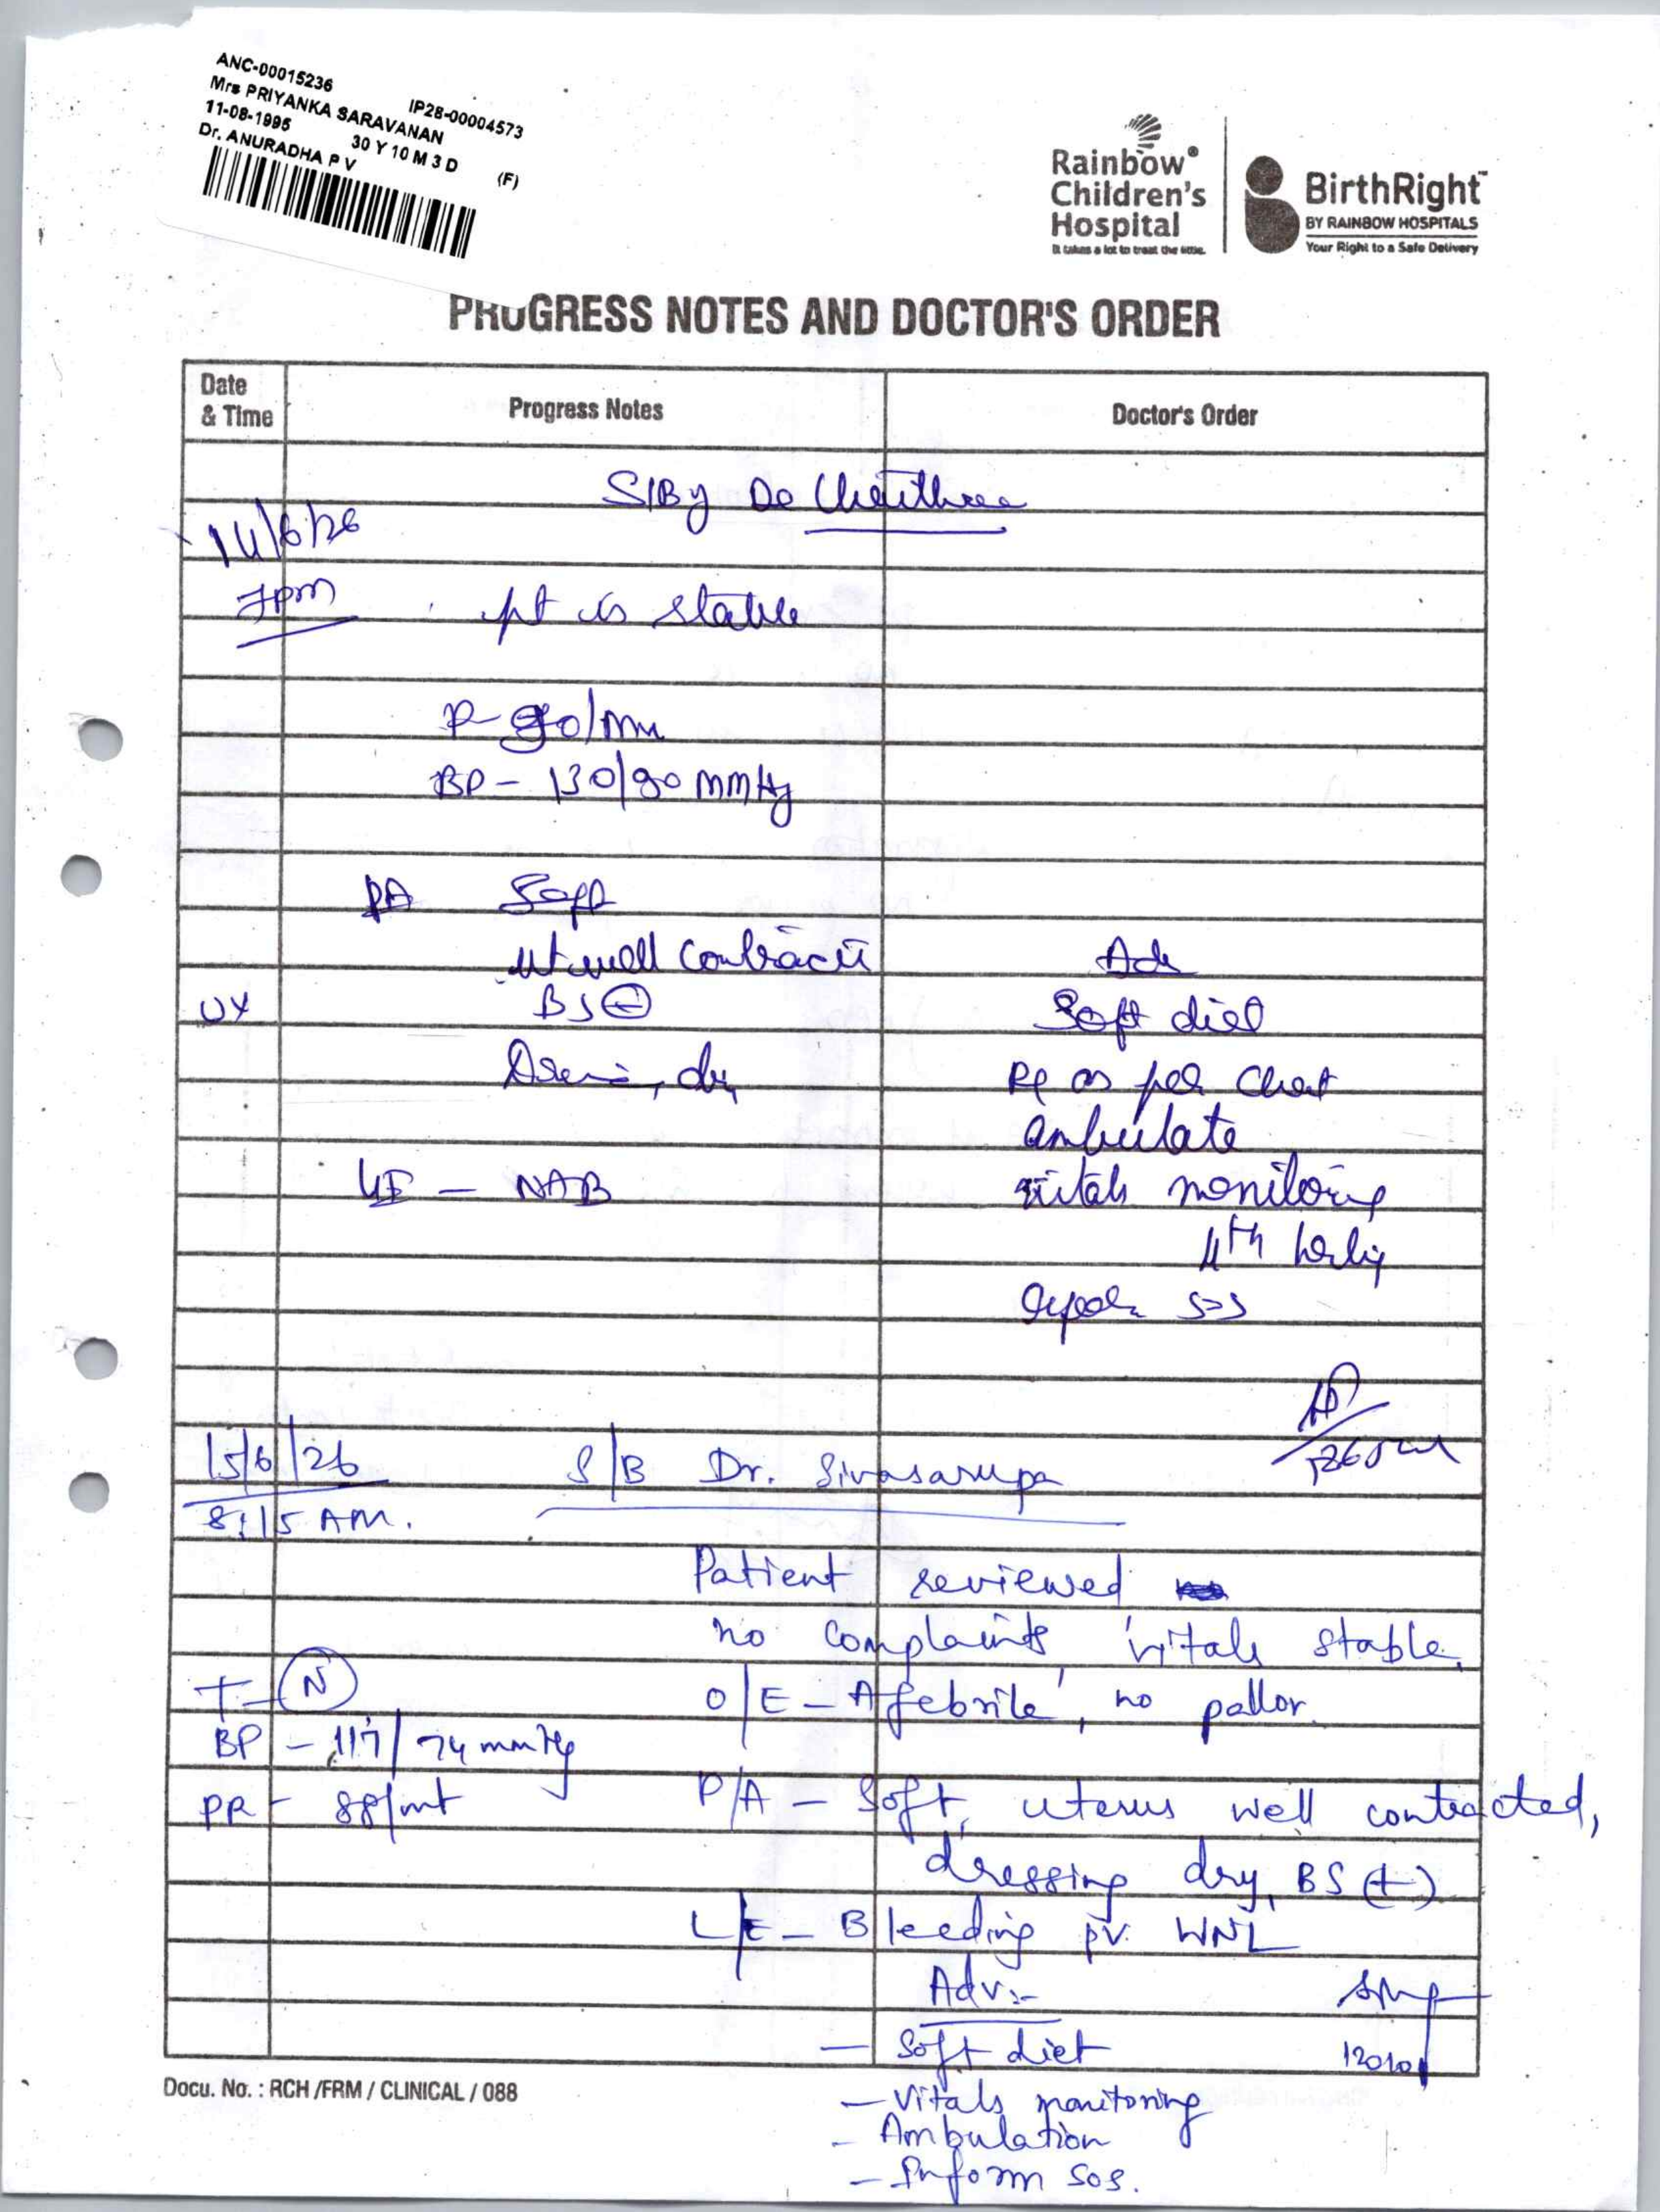 ANC-00015236 IP28-00004573
Mrs PRIYANKA SARAVANAN
11-08-1995 30 Y 10 M 3 D (F)
Dr. ANURADHA P V
Rainbow® Children's Hospital
It takes a lot to treat the little.
BirthRight™
BY RAINBOW HOSPITALS
Your Right to a Safe Delivery
PROGRESS NOTES AND DOCTOR'S ORDER
Date & Time Progress Notes Doctor's Order
S/By Dr
14/6/26
7pm pt is stable
P- /mn
BP - 130/90 mmHg
PA Soft
ut well contracted
BS
dry
NAB
Adv
Soft diet
Rx as per Chart
ambulate
vitals monitoring
4th hrly
SOS
15/6/26 S/B Dr. Sivasarupa
8:15 AM.
Patient reviewed
no complaints, vitals stable,
T - (N) O/E - Afebrile, no pallor.
BP - 117/74 mmHg
PR - 88/mt P/A - Soft, uterus well contracted,
dressing dry, BS (+)
L/E - Bleeding pv. WNL
Adv:-
- Soft diet
Docu. No. : RCH /FRM / CLINICAL / 088
- Vitals monitoring
- Ambulation
- Inform SOS.